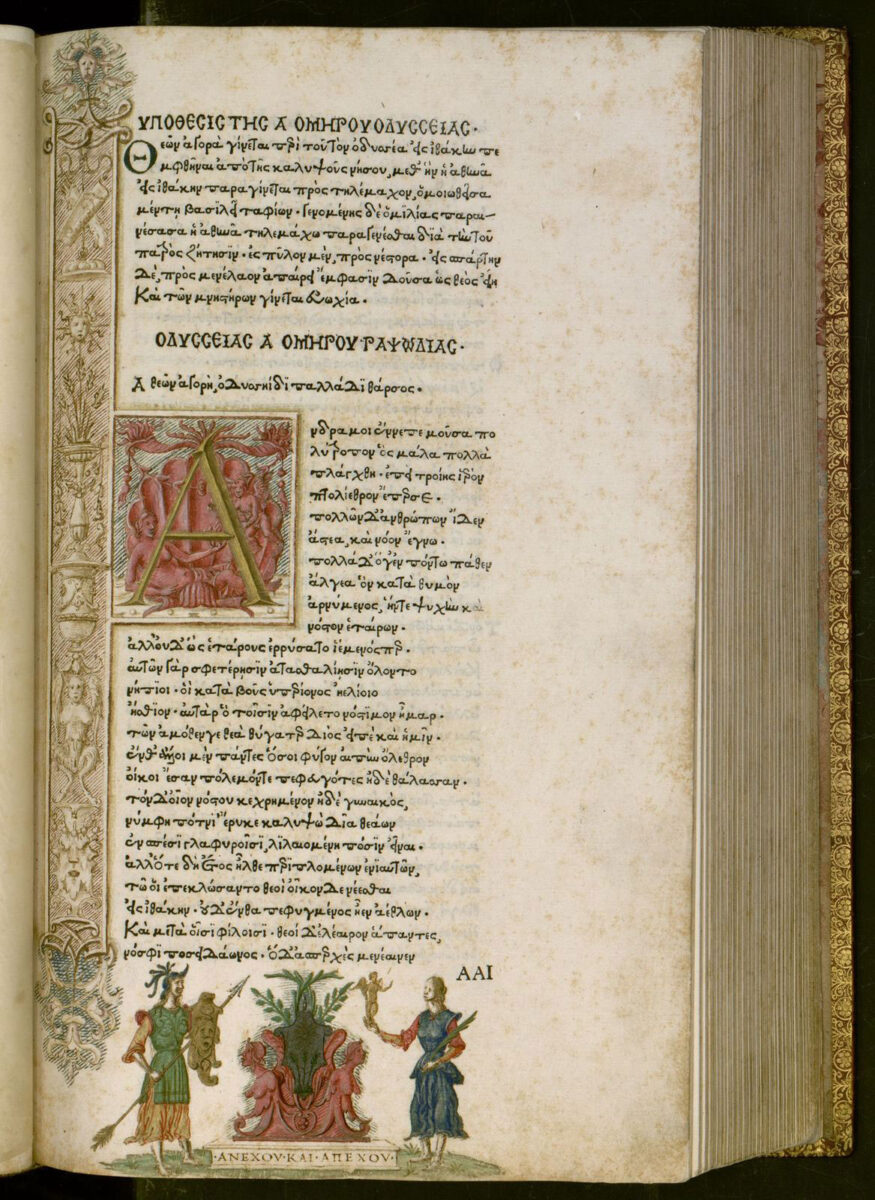 ΥΠΟΘΕCΙC ΤΗC Α ΟΜΗΡΟΥ ΟΔΥCCΕΙΑC·
Θεῶν ἀγορὰ γίνεται περὶ τοῦ τὸν ὀδυσσέα εἰς ἰθάκην πε
μφθῆναι ἀπὸ τῆς καλυψοῦς νήσου, μεθ' ἣν ἡ ἀθηνᾶ
εἰς ἰθάκην παραγίνεται πρὸς τηλέμαχον, ὁμοιωθεῖσα
μέντη βασιλεῖ ταφίων· γενομένης δὲ ὁμιλίας παραι-
νέσασα ἡ ἀθηνᾶ τηλεμάχω παραγενέσθαι διὰ τὴν τοῦ
πατρὸς ζήτησιν· ἐς πύλον μὲν, πρὸς νέστορα· εἰς σπάρτην
δὲ, πρὸς μενέλαον ἀπαίρει ἔμφασιν δοῦσα ὡς θεὸς εἴη
Καὶ τῶν μνηστήρων γίνεται εὐωχία·
ΟΔΥCCΕΙΑC Α ΟΜΗΡΟΥ ΡΑΨΩΔΙΑC·
Α θεῶν ἀγορὴ, ὀδυσσηΐδι παλλάδι θάρσος·
Ανδρα μοι ἔννεπε μοῦσα πο
λύτροπον ὃς μάλα πολλὰ
πλάγχθη· ἐπεὶ τροίης ἱερὸν
πτολίεθρον ἔπερσε·
πολλῶν δ' ἀνθρώπων ἴδεν
ἄστεα, καὶ νόον ἔγνω·
πολλὰ δ' ὅγ' ἐν πόντω πάθεν
ἄλγεα ὃν κατὰ θυμὸν
ἀρνύμενος, ἥντε ψυχὴν καὶ
νόστον ἑταίρων·
ἀλλ' οὐδ' ὣς ἑτάρους ἐρρύσατο ἱέμενός περ·
αὐτῶν γὰρ σφετέρησιν ἀτασθαλίησιν ὄλοντο
νήπιοι· οἳ κατὰ βοῦς ὑπερίονος ἠελίοιο
ἤσθιον· αὐτὰρ ὁ τοῖσιν ἀφείλετο νόστιμον ἦμαρ·
τῶν ἀμόθεν γε θεὰ θύγατερ διὸς εἰπὲ καὶ ἡμῖν·
ἔνθ' ἄλλοι μὲν πάντες ὅσοι φύγον αἰπὺν ὄλεθρον
οἴκοι ἔσαν πόλεμόν τε πεφευγότες ἠδὲ θάλασσαν·
τὸν δ' οἶον νόστου κεχρημένον ἠδὲ γυναικὸς,
νύμφη πότνι' ἔρυκε καλυψὼ δῖα θεάων
ἐν σπέσσι γλαφυροῖσι, λιλαιομένη πόσιν εἶναι·
ἀλλ' ὅτε δὴ ἔτος ἦλθε περιπλομένων ἐνιαυτῶν,
τῶ οἱ ἐπεκλώσαντο θεοὶ οἶκον δε νέεσθαι
εἰς ἰθάκην· οὐδ' ἔνθα πεφυγμένος ἦεν ἀέθλων·
Καὶ μετὰ οἷσι φίλοισι· θεοὶ δ' ἐλέαιρον ἅπαντες,
νόσφι ποσειδάωνος· ὁ δ' ἀσπερχὲς μενέαινεν
ΑΑΙ
·ΑΝΕΧΟΥ·ΚΑΙ·ΑΠΕΧΟΥ·